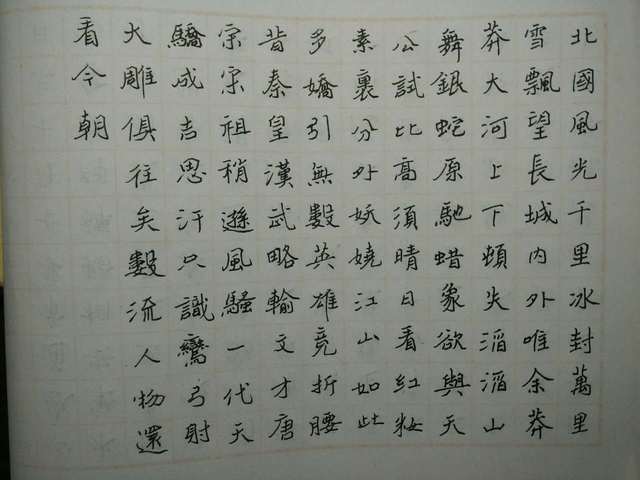 北國風光千里冰封萬里
雪飄望長城内外唯余莽
莽大河上下頓失滔滔山
舞銀蛇原馳蜡象欲與天
公試比高須晴日看紅妝
素裹分外妖嬈江山如此
多嬌引無數英雄竟折腰
昔秦皇漢武略輸文才唐
宗宋祖稍遜風騷一代天
驕成吉思汗只識彎弓射
大雕俱往矣數流人物還
看今朝